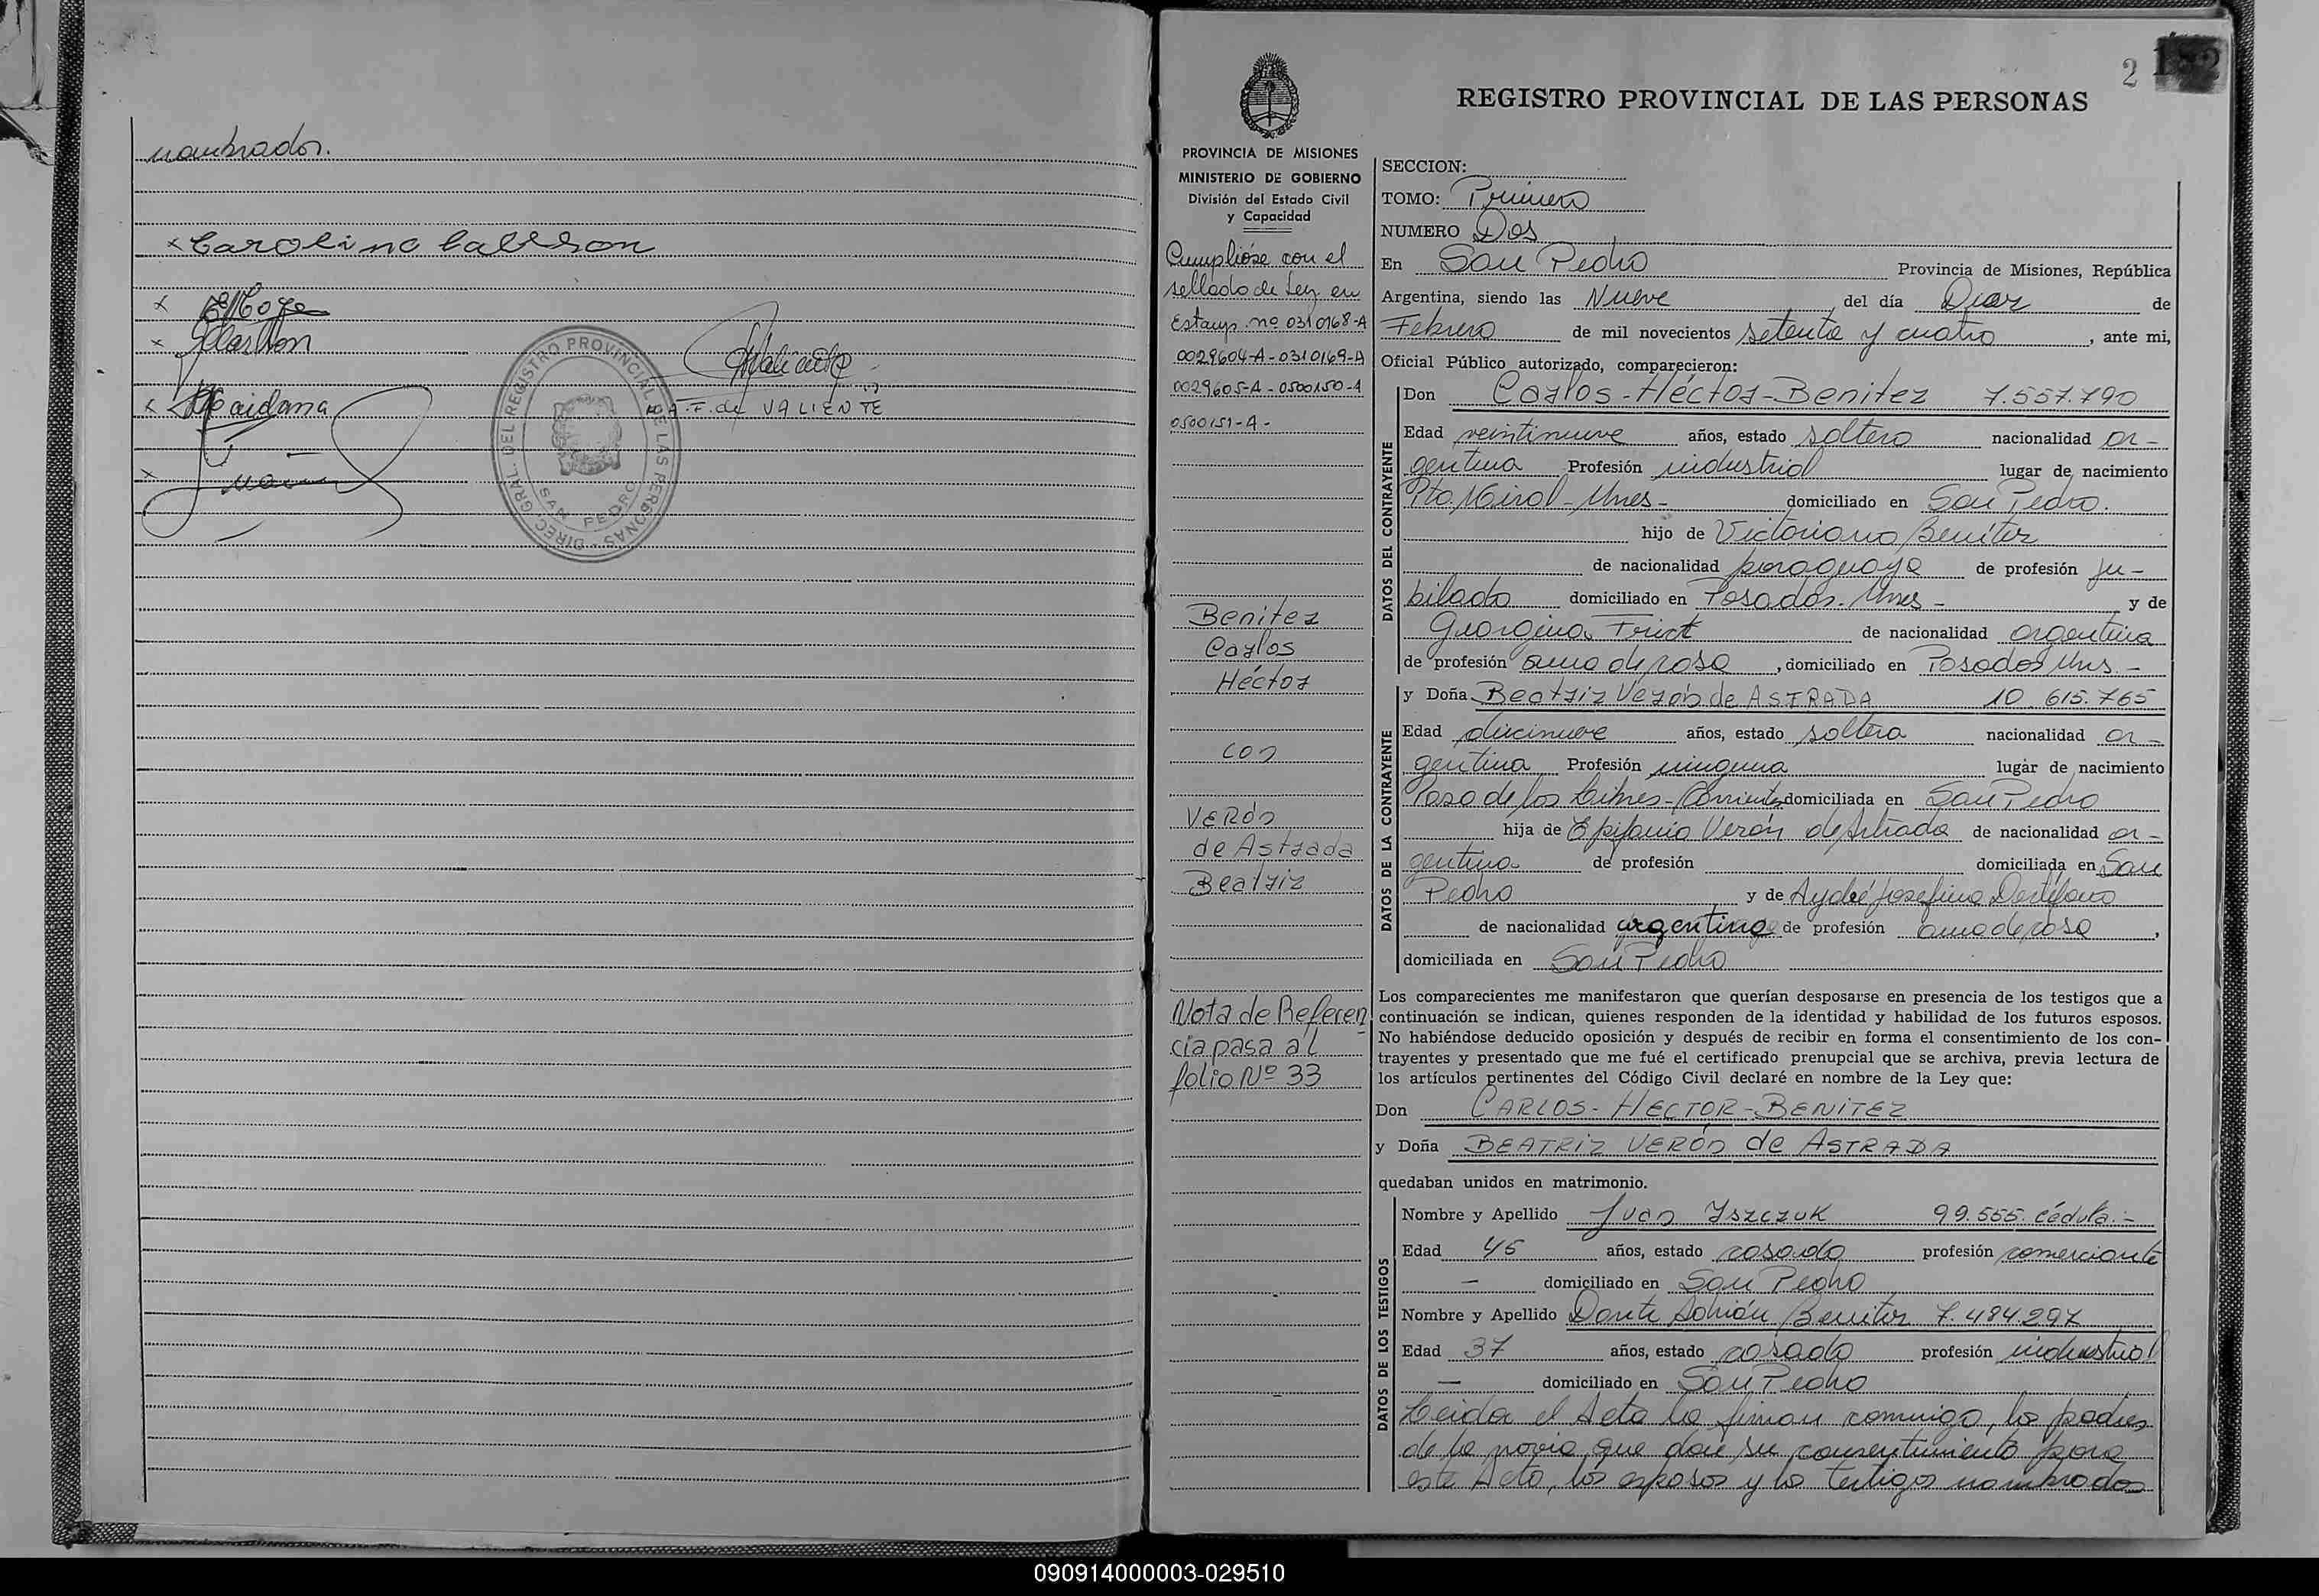 nombrados.
x Carolina Carlson
x
x GCarlson
x Maidana
A. F. de VALIENTE
x
DIREC. GRAL. DEL REGISTRO PROVINCIAL DE LAS PERSONAS
SAN PEDRO
2
REGISTRO PROVINCIAL DE LAS PERSONAS
PROVINCIA DE MISIONES
MINISTERIO DE GOBIERNO
División del Estado Civil
y Capacidad
Cumplióse con el
sellado de Ley en
Estamp. nº 0310168-A
0029604-A-0310169-A
0029605-A-0500150-A
0500151-A-
Benitez
Carlos
Héctor
con
VERÓN
de Astrada
Beatriz
Nota de Referen
cia pasa al
folio Nº 33
SECCION:
TOMO: Primero
NUMERO Dos
En San Pedro Provincia de Misiones, República
Argentina, siendo las Nueve del día Diez de
Febrero de mil novecientos setenta y cuatro, ante mi,
Oficial Público autorizado, comparecieron:
DATOS DEL CONTRAYENTE
Don Carlos-Héctor-Benitez 7.557.790
Edad veintinueve años, estado soltero nacionalidad ar-
gentina Profesión industrial lugar de nacimiento
Pto. - Mnes- domiciliado en San Pedro.
hijo de Victoriano Benítez
de nacionalidad paraguaya de profesión ju-
bilado domiciliado en Posadas. Mnes- y de
Georgina de nacionalidad argentina
de profesión ama de casa, domiciliado en Posadas Mns.-
DATOS DE LA CONTRAYENTE
y Doña Beatriz Verón de ASTRADA 10.615.765
Edad diecinueve años, estado soltera nacionalidad ar-
gentina Profesión ninguna lugar de nacimiento
Paso de los Libres-Corrientes domiciliada en San Pedro
hija de Epifanio Verón de Astrada de nacionalidad ar-
gentina de profesión domiciliada en San
Pedro y de Aydeé Josefina
de nacionalidad argentina de profesión ama de casa,
domiciliada en San Pedro
Los comparecientes me manifestaron que querían desposarse en presencia de los testigos que a
continuación se indican, quienes responden de la identidad y habilidad de los futuros esposos.
No habiéndose deducido oposición y después de recibir en forma el consentimiento de los con-
trayentes y presentado que me fué el certificado prenupcial que se archiva, previa lectura de
los artículos pertinentes del Código Civil declaré en nombre de la Ley que:
Don CARLOS-HECTOR-BENITEZ
y Doña BEATRIZ VERÓN de ASTRADA
quedaban unidos en matrimonio.
DATOS DE LOS TESTIGOS
Nombre y Apellido Juan Iszczuk 99.555. cédula.-
Edad 45 años, estado casado profesión comerciante
- domiciliado en San Pedro
Nombre y Apellido Dante Adrián Benitez 7.484.297
Edad 37 años, estado casado profesión industrial
- domiciliado en San Pedro
Leida el Acta la firman conmigo, los padres
de la novia que dan su consentimiento para
este Acto, los esposos y los testigos nombrados
090914000003-029510